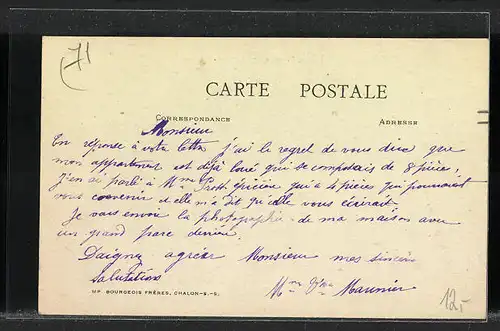 71
CARTE POSTALE
CORRESPONDANCE ADRESSE
Monsieur
En réponse à votre lettre j'ai le regret de vous dire que
mon appartement est déjà loué qui se composais de 8 pièces,
J'en ai parlé à Mme épicière qui a 4 pièces qui pourraient
vous convenir et elle m'a dit qu'elle vous écrirait.
Je vous envoie la photographie de ma maison avec
un grand parc derrière.
Daignez agréer Monsieur mes sincères
Salutations
Mme Maunier
MP. BOURGEOIS FRÈRES, CHALON-S.-S.
12,-